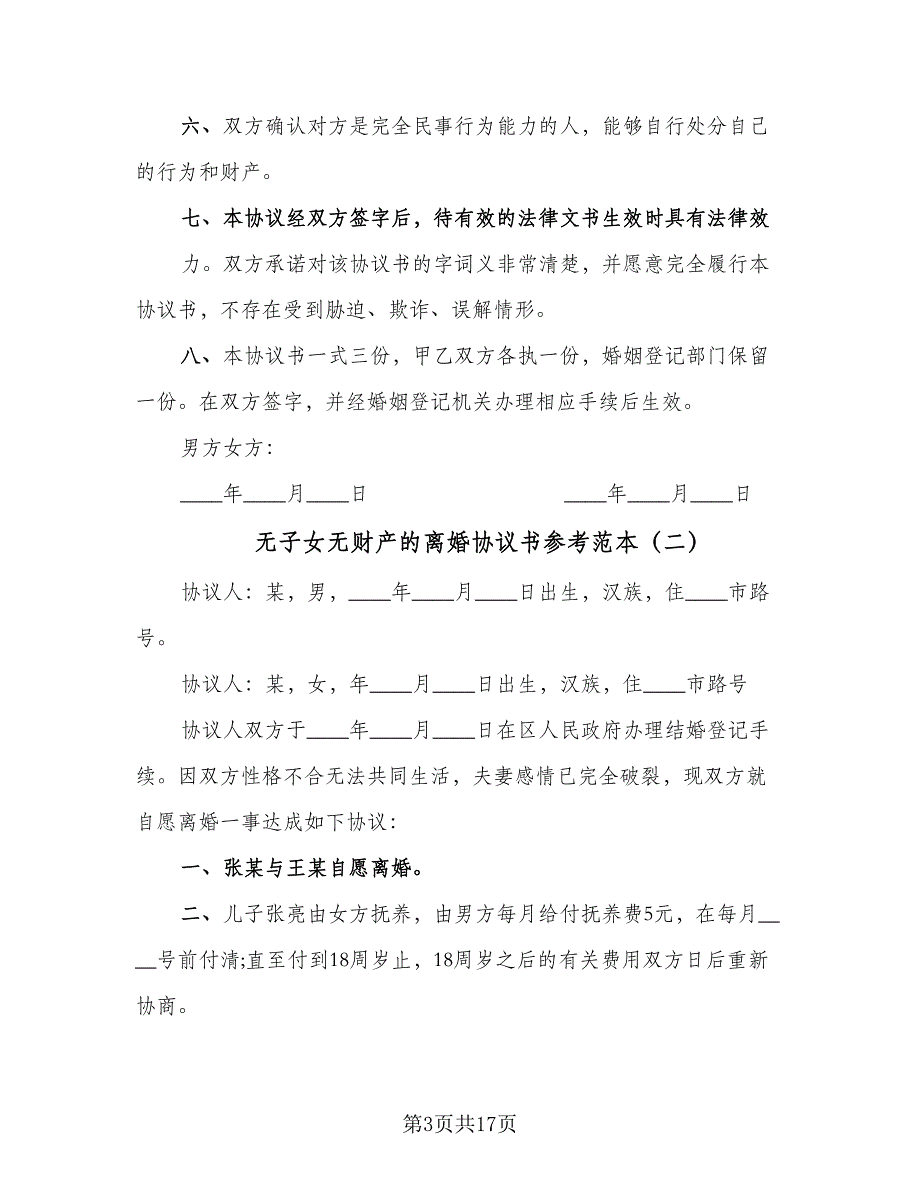 六、双方确认对方是完全民事行为能力的人，能够自行处分自己
的行为和财产。
七、本协议经双方签字后，待有效的法律文书生效时具有法律效
力。双方承诺对该协议书的字词义非常清楚，并愿意完全履行本
协议书，不存在受到胁迫、欺诈、误解情形。
八、本协议书一式三份，甲乙双方各执一份，婚姻登记部门保留
一份。在双方签字，并经婚姻登记机关办理相应手续后生效。
男方女方：
____年____月____日 ____年____月____日
无子女无财产的离婚协议书参考范本（二）
协议人：某，男，____年____月____日出生，汉族，住____市路
号。
协议人：某，女，年____月____日出生，汉族，住____市路号
协议人双方于____年____月____日在区人民政府办理结婚登记手
续。因双方性格不合无法共同生活，夫妻感情已完全破裂，现双方就
自愿离婚一事达成如下协议：
一、张某与王某自愿离婚。
二、儿子张亮由女方抚养，由男方每月给付抚养费5元，在每月__
__号前付清;直至付到18周岁止，18周岁之后的有关费用双方日后重新
协商。
第3页共17页